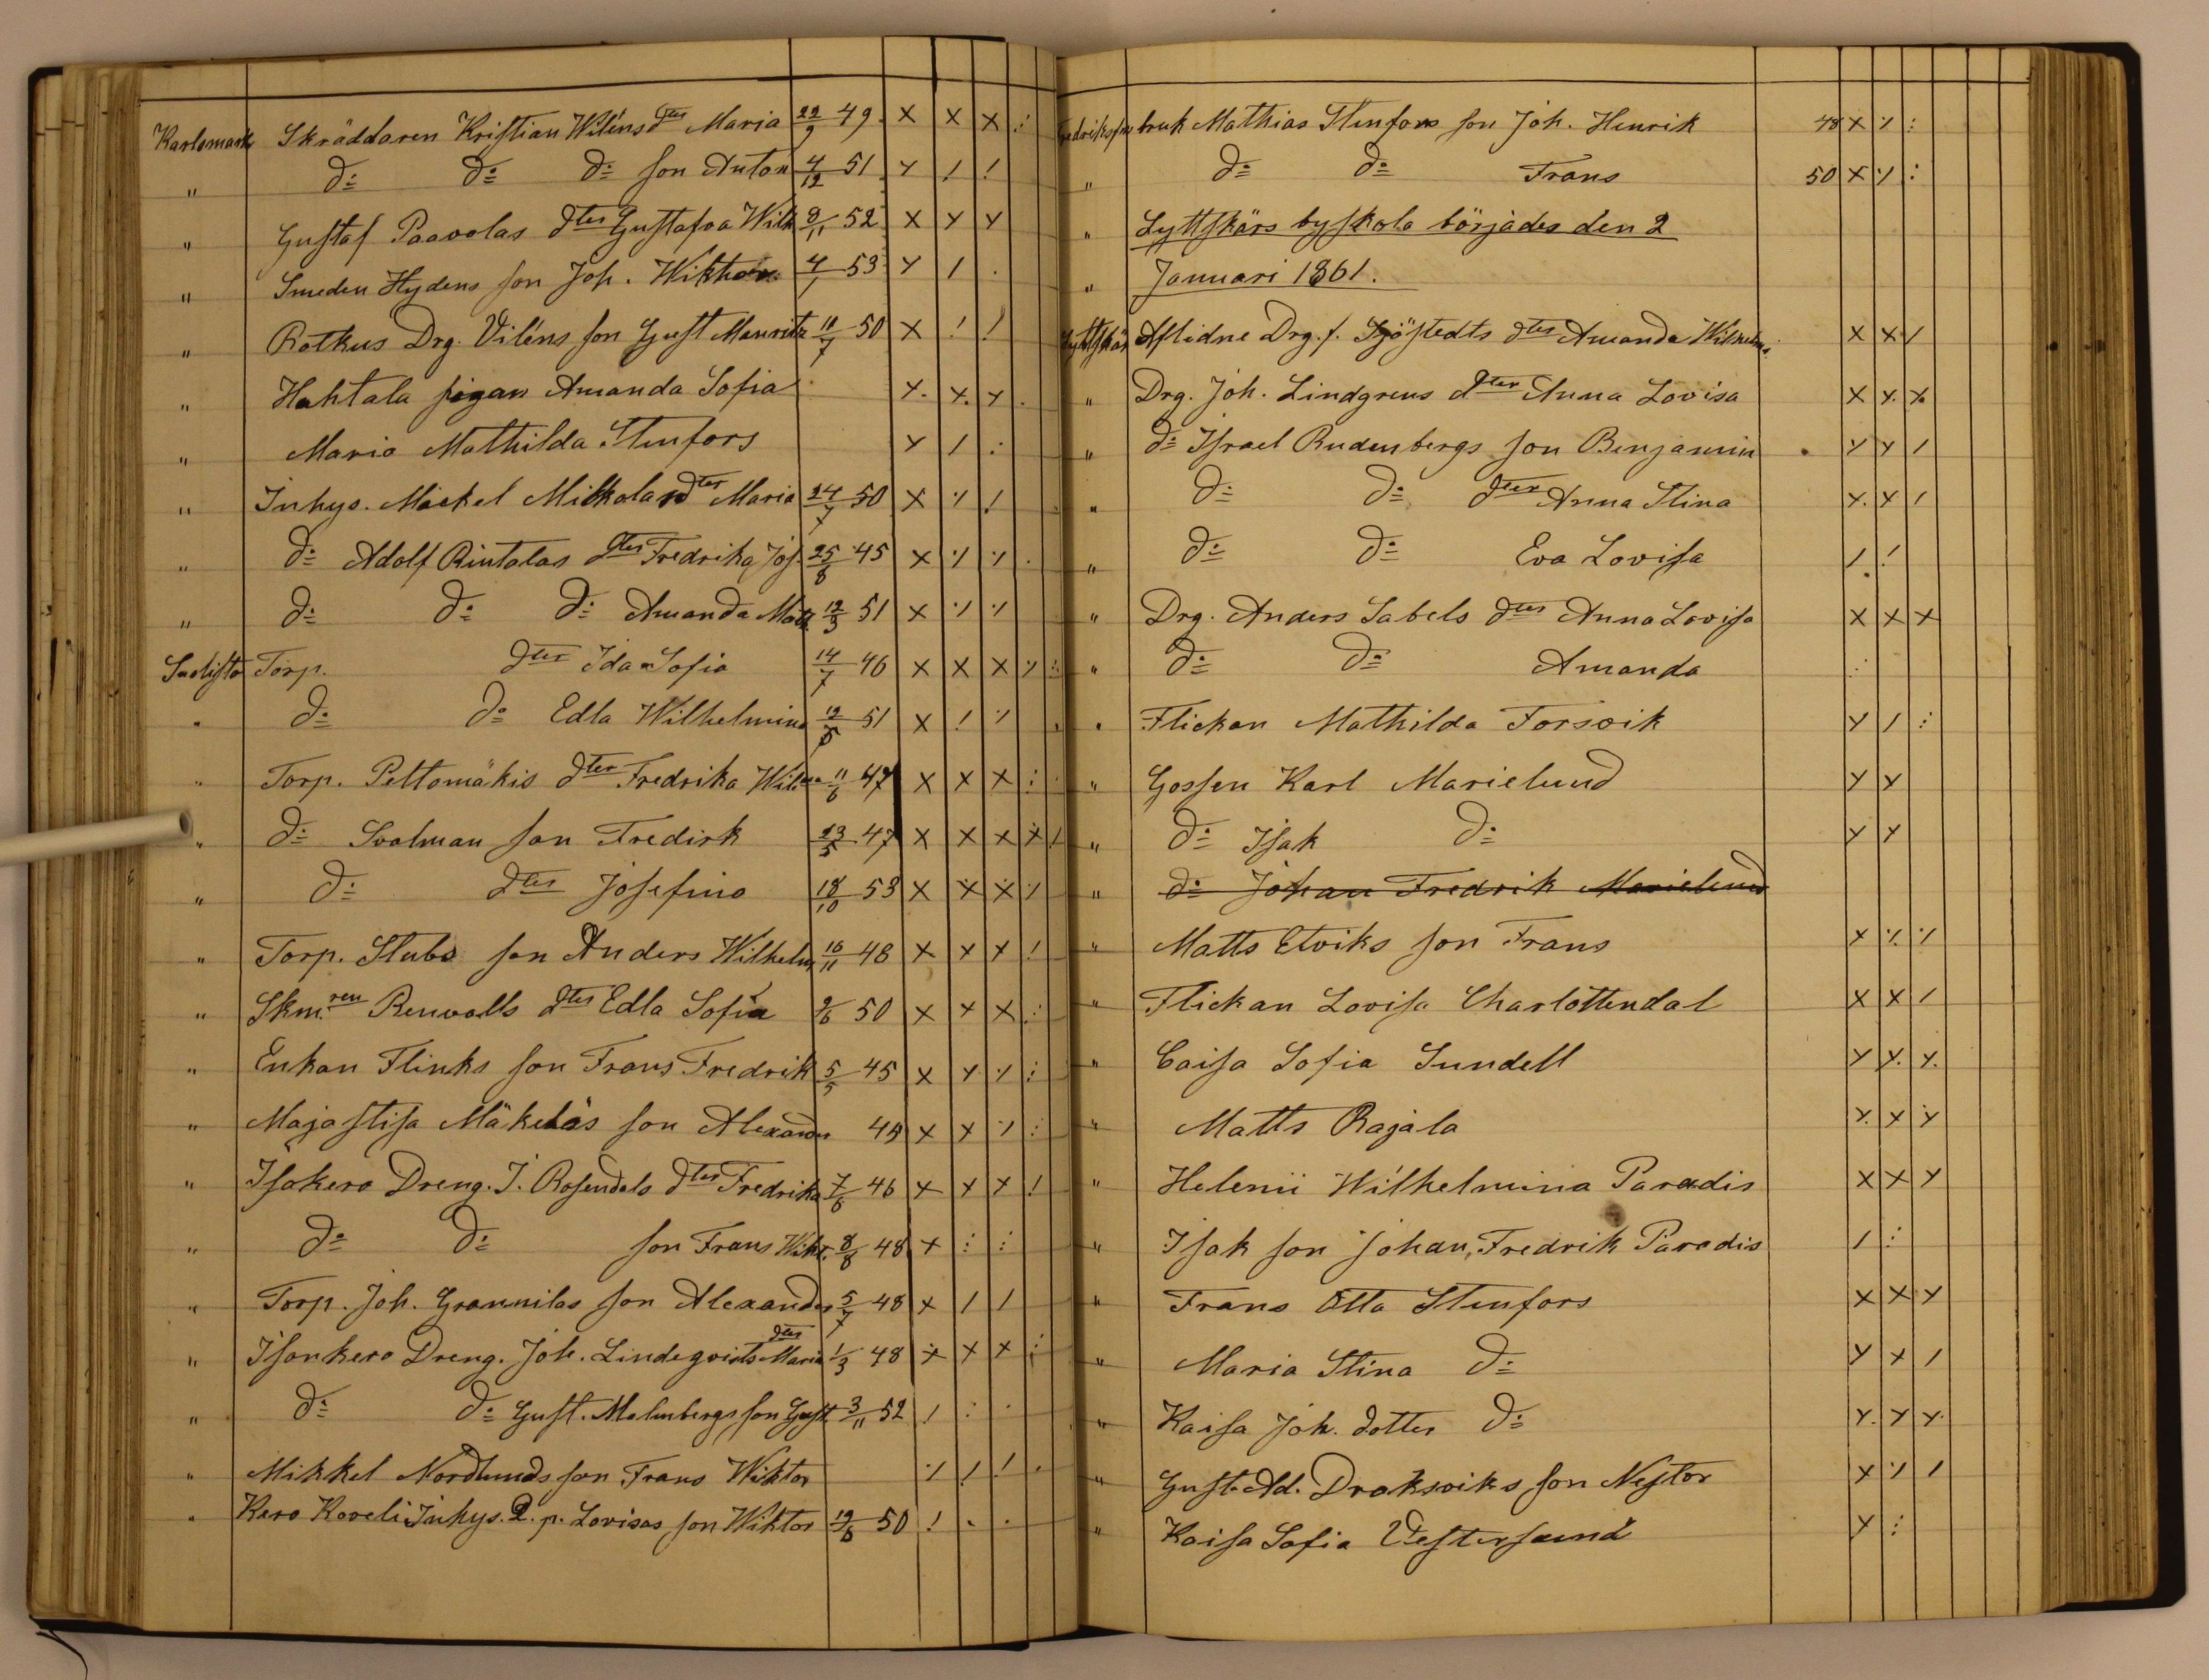 Karlsmark Skräddaren Kristian Wiléns dter Maria 22/9 49 × × × :
" d:o d:o d:o son Anton 4/12 51 × / /
" Gustaf Paavolas dter Gustafva Wilh 9/11 52 × × ×
" Smeden Hydens son Joh. Wikthor 4/1 53 × / .
" Rotkus Drg. Viléns son Gust Mauritz 10/7 50 × ! !
" Hahtala pigan Amanda Sofia × × ×
" Maria Mathilda Stenfors × / :
" Inhys. Mickel Mikkolas dter Maria 24/7 50 × ·/· !
" d:o Adolf Rintalas dter Fredrika Jos. 25/8 45 × ·/· ·/·
" d:o d:o d:o Amanda Math. 12/3 51 × ·/· ·/·
Suolisto Torp. dter Ida Sofia 14/7 46 × × × ·/· :
" d:o d:o Edla Wilhelmina 12/5 51 × ! ·/·
" Torp. Peltomäkis dter Fredrika Wilh 11/6 47 × × × :
" d:o Soolman son Fredirk 23/5 47 × × × × /
" d:o dter Josefina 18/10 53 × × × ·/·
" Torp. Stubs son Anders Wilhelm 16/11 48 × × × !
" Skm.ren Renvalls dter Edla Sofia 2/6 50 × × × :
" Enkan Flinks son Frans Fredrik 5/5 45 × × ·/· :
" Majastisa Mäkeläs son Alexander 49 × × ·/· :
" Isokero Dreng. J. Rosendals dter Fredrika 7/6 46 × × × !
" d:o d:o son Frans Wikt. 8/8 48 × : :
" Torp. Joh. Grannilas son Alexander 5/7 48 × / /
" Isonkero Dreng. Joh. Lindeqvists dter Maria 1/3 48 × × × :
" d:o d:o Gust. Malmbergs son Gust 3/11 52 / : ·
" Mikkel Nordlunds son Frans Wiktor ·/· / !
" Kero Koveli Inhys. Q. p. Lovisas son Wiktor 19/6 50 ! . .
Fredriksfors bruk Mathias Stenfors son Joh. Henrik 48 × ·/· :
" d:o d:o Frans 50 × ·/· :
" Lyttskärs byskola börjades den 2
" Januari 1861.
Lyttskär Aflidne Drg. f. Sjöstedts dter Amanda Wilhelm. × × /
" Drg. Joh. Lindgrens dter Anna Lovisa × × ×
" d:o Israel Rudenbergs son Benjamin × × /
" d:o d:o dter Anna Stina × × /
" d:o d:o Eva Lovisa / !
" Drg. Anders Sabels dter Anna Lovisa × × ×
" d:o d:o Amanda :
" Flickan Mathilda Forsvik × / :
" Gossen Karl Marielund × ×
" d:o Isak d:o × ×
" d:o Johan Fredrik Marielund
" Matts Etviks son Frans × ·/· ·/·
" Flickan Lovisa Charlottendal × × /
" Caisa Sofia Sundell × × ×
" Matts Rajala × × ×
" Helenii Wilhelmina Paradis × × ×
" Isak son Johan, Fredrik Paradis / :
" Frans Otto Stenfors × × ×
" Maria Stina d:o × × /
" Kaisa Joh. dotter d:o × × ×
" Gust. Ad. Draksviks son Nestor × ·/· /
" Kaisa Sofia Vestersund × :